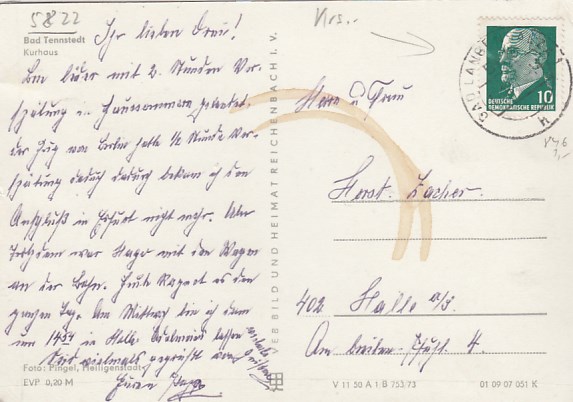 5822
Bad Tennstedt
Kurhaus
Ihr lieben Drei!
Bin hier mit 2 Stunden Ver-
spätung in gelandet.
der Zug von Berlin hatte 1/2 Stunde Ver-
spätung dadurch bekam ich den
Anschluß in Erfurt nicht mehr. Aber
trotzdem war Hugo mit den Wagen
an der Bahn. Heute Regnet es den
ganzen Tag. Am Mittwoch bin ich dann
um 1454 in Halle.
Seid vielmals gegrüßt von
Euren Papa
Foto: Pingel, Heiligenstadt
EVP 0,20 M
VEB BILD UND HEIMAT REICHENBACH I. V.
Krs.
DEUTSCHE
DEMOKRATISCHE REPUBLIK
10
BAD LANG
Herrn u Frau
Horst Lacher
402 Halle a/S.
Am breiten Pfuhl 4.
V 11 50 A 1 B 753/73
01 09 07 051 K